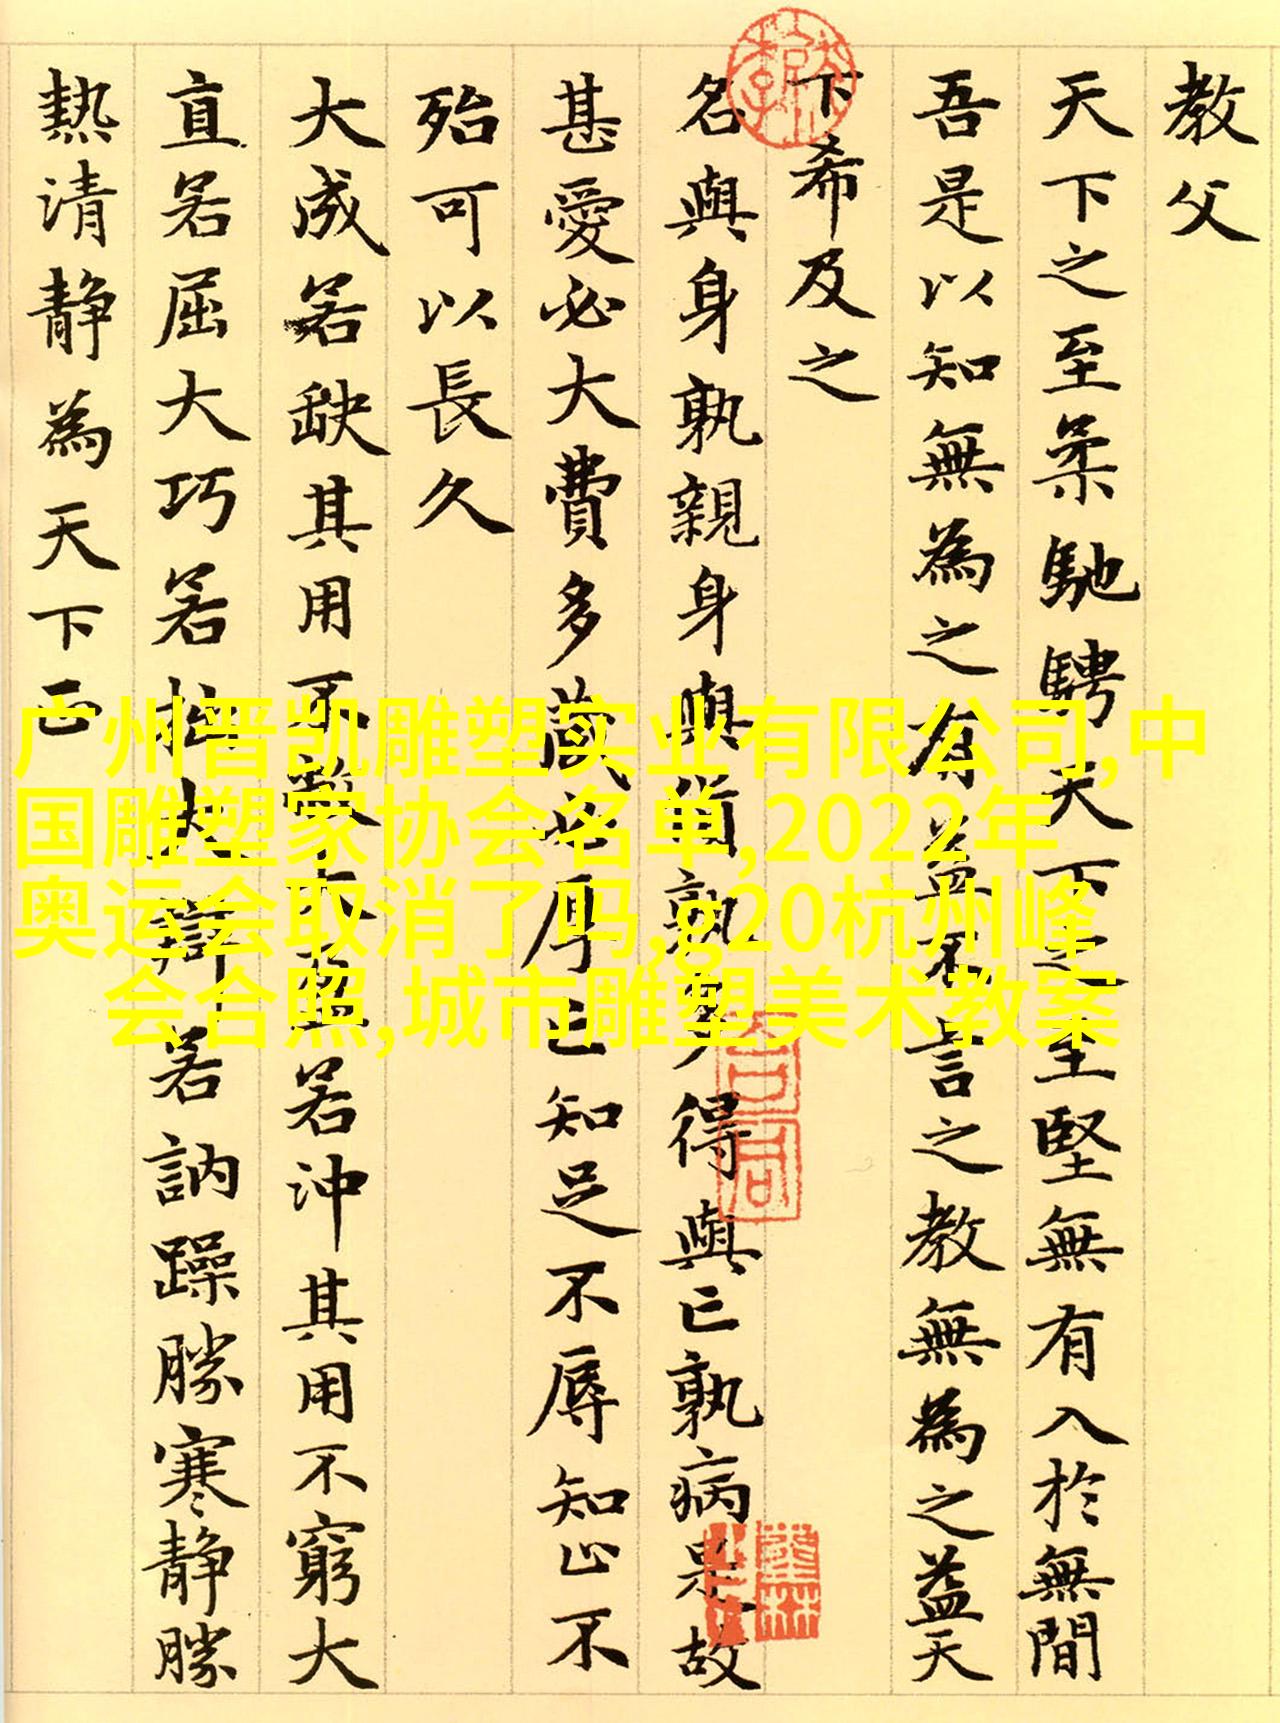 教父
天下之至柔馳騁天下之至堅無有入於無間
吾是以知無為之有益不言之教無為之益天
下希及之
名與身孰親身與貨孰多得與亡孰病是故
甚愛必大費多藏必厚亡知足不辱知止不
殆可以長久
大成若缺其用不弊大盈若沖其用不窮大
直若屈大巧若拙大辯若訥躁勝寒静勝
熱清静為天下正
广州晋凯雕塑实业有限公司,中
国雕塑家协会名单,2022年
奥运会取消了吗,g20杭州峰
会合照,城市雕塑美术教案